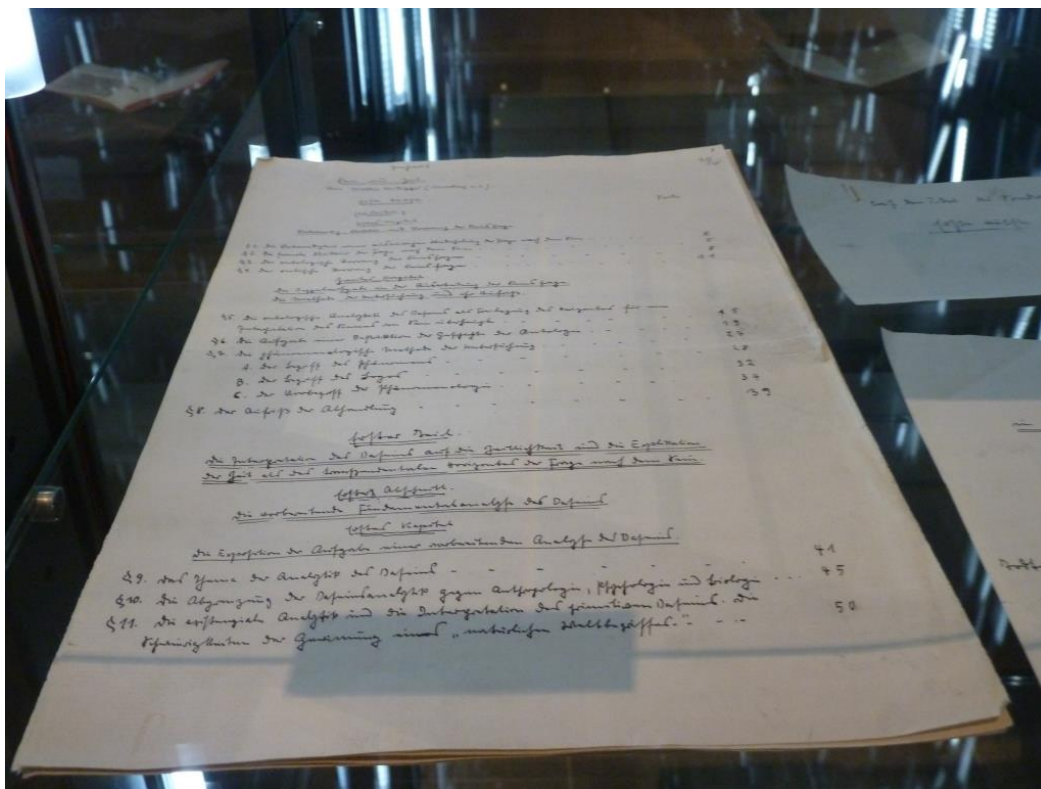 Inhalt
Sein und Zeit
Von Martin Heidegger (Marburg a. L.)
Erste Hälfte
Einleitung
Erstes Kapitel
Notwendigkeit, Struktur und Vorrang der Seinsfrage
§ 1. Die Notwendigkeit einer ausdrücklichen Wiederholung der Frage nach dem Sein
§ 2. Die formale Struktur der Frage nach dem Sein 5
§ 3. Der ontologische Vorrang der Seinsfrage 8
§ 4. Der ontische Vorrang der Seinsfrage 11
Zweites Kapitel
Die Doppelaufgabe in der Ausarbeitung der Seinsfrage
Die Methode der Untersuchung und ihr Aufriß.
§ 5. Die ontologische Analytik des Daseins als Freilegung des Horizontes für eine
Interpretation des Sinnes von Sein überhaupt 15
§ 6. Die Aufgabe einer Destruktion der Geschichte der Ontologie 19
§ 7. Die phänomenologische Methode der Untersuchung 27
A. Der Begriff des Phänomens 28
B. Der Begriff des Logos 32
C. Der Vorbegriff der Phänomenologie 34
§ 8. Der Aufriß der Abhandlung 39
Erster Teil.
Die Interpretation des Daseins auf die Zeitlichkeit und die Explikation
der Zeit als des transzendentalen Horizontes der Frage nach dem Sein
Erster Abschnitt.
Die vorbereitende Fundamentalanalyse des Daseins
Erstes Kapitel
Die Exposition der Aufgabe einer vorbereitenden Analyse des Daseins.
§ 9. Das Thema der Analytik des Daseins 41
§ 10. Die Abgrenzung der Daseinsanalytik gegen Anthropologie, Psychologie und Biologie 45
§ 11. Die existenziale Analytik und die Interpretation des primitiven Daseins. Die
Schwierigkeiten der Gewinnung eines „natürlichen Weltbegriffes." 50